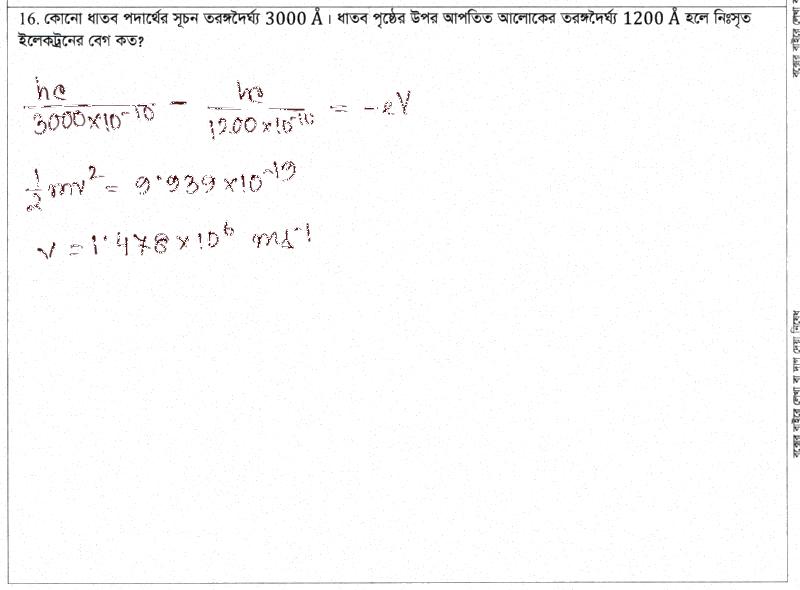 16. কোনো ধাতব পদার্থের সূচন তরঙ্গদৈর্ঘ্য 3000 Å। ধাতব পৃষ্ঠের উপর আপতিত আলোকের তরঙ্গদৈর্ঘ্য 1200 Å হলে নিঃসৃত
ইলেকট্রনের বেগ কত?
hc/3000×10^-10 - hc/1200×10^-10 = -eV
1/2 mv^2 = 9.939×10^-19
v = 1.478×10^6 ms^-1
বক্সের বাইরে লেখা বা দাগ দেয়া নিষেধ